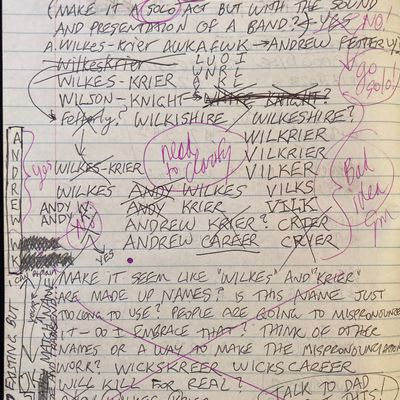 (MAKE IT A SOLO ACT BUT WITH THE SOUND
AND PRESENTATION OF A BAND? → YES NO!
A. WILKES-KRIER AWKAFWK → ANDREW FETTERLY?
WILKESKRIER
WILKES-KRIER
GO SOLO!
WILSON-KNIGHT → KNIGHT?
Fetterly? WILKISHIRE WILKESHIRE?
WILKRIER
WILKES-KRIER need to clarify VILKRIER
VILKER
WILKES ANDY WILKES VILKS
ANDY W. ANDY KRIER VILK
ANDY K. NO
ANDREW KRIER? CRIER
YES ANDREW CAREER CRYER
Bad idea
ANDREW WK
yes
EXISTING BUT
MAKE IT SEEM LIKE "WILKES" AND "KRIER"
ARE MADE UP NAMES? IS THIS NAME JUST
TOO LONG TO USE? PEOPLE ARE GOING TO MISPRONOUNCE
IT - DO I EMBRACE THAT? THINK OF OTHER
NAMES OR A WAY TO MAKE THE MISPRONUNCIATION
WORK? WICKSKREER WICKSCAREER
WILL KILL FOR REAL? TALK TO DAD
THIS!